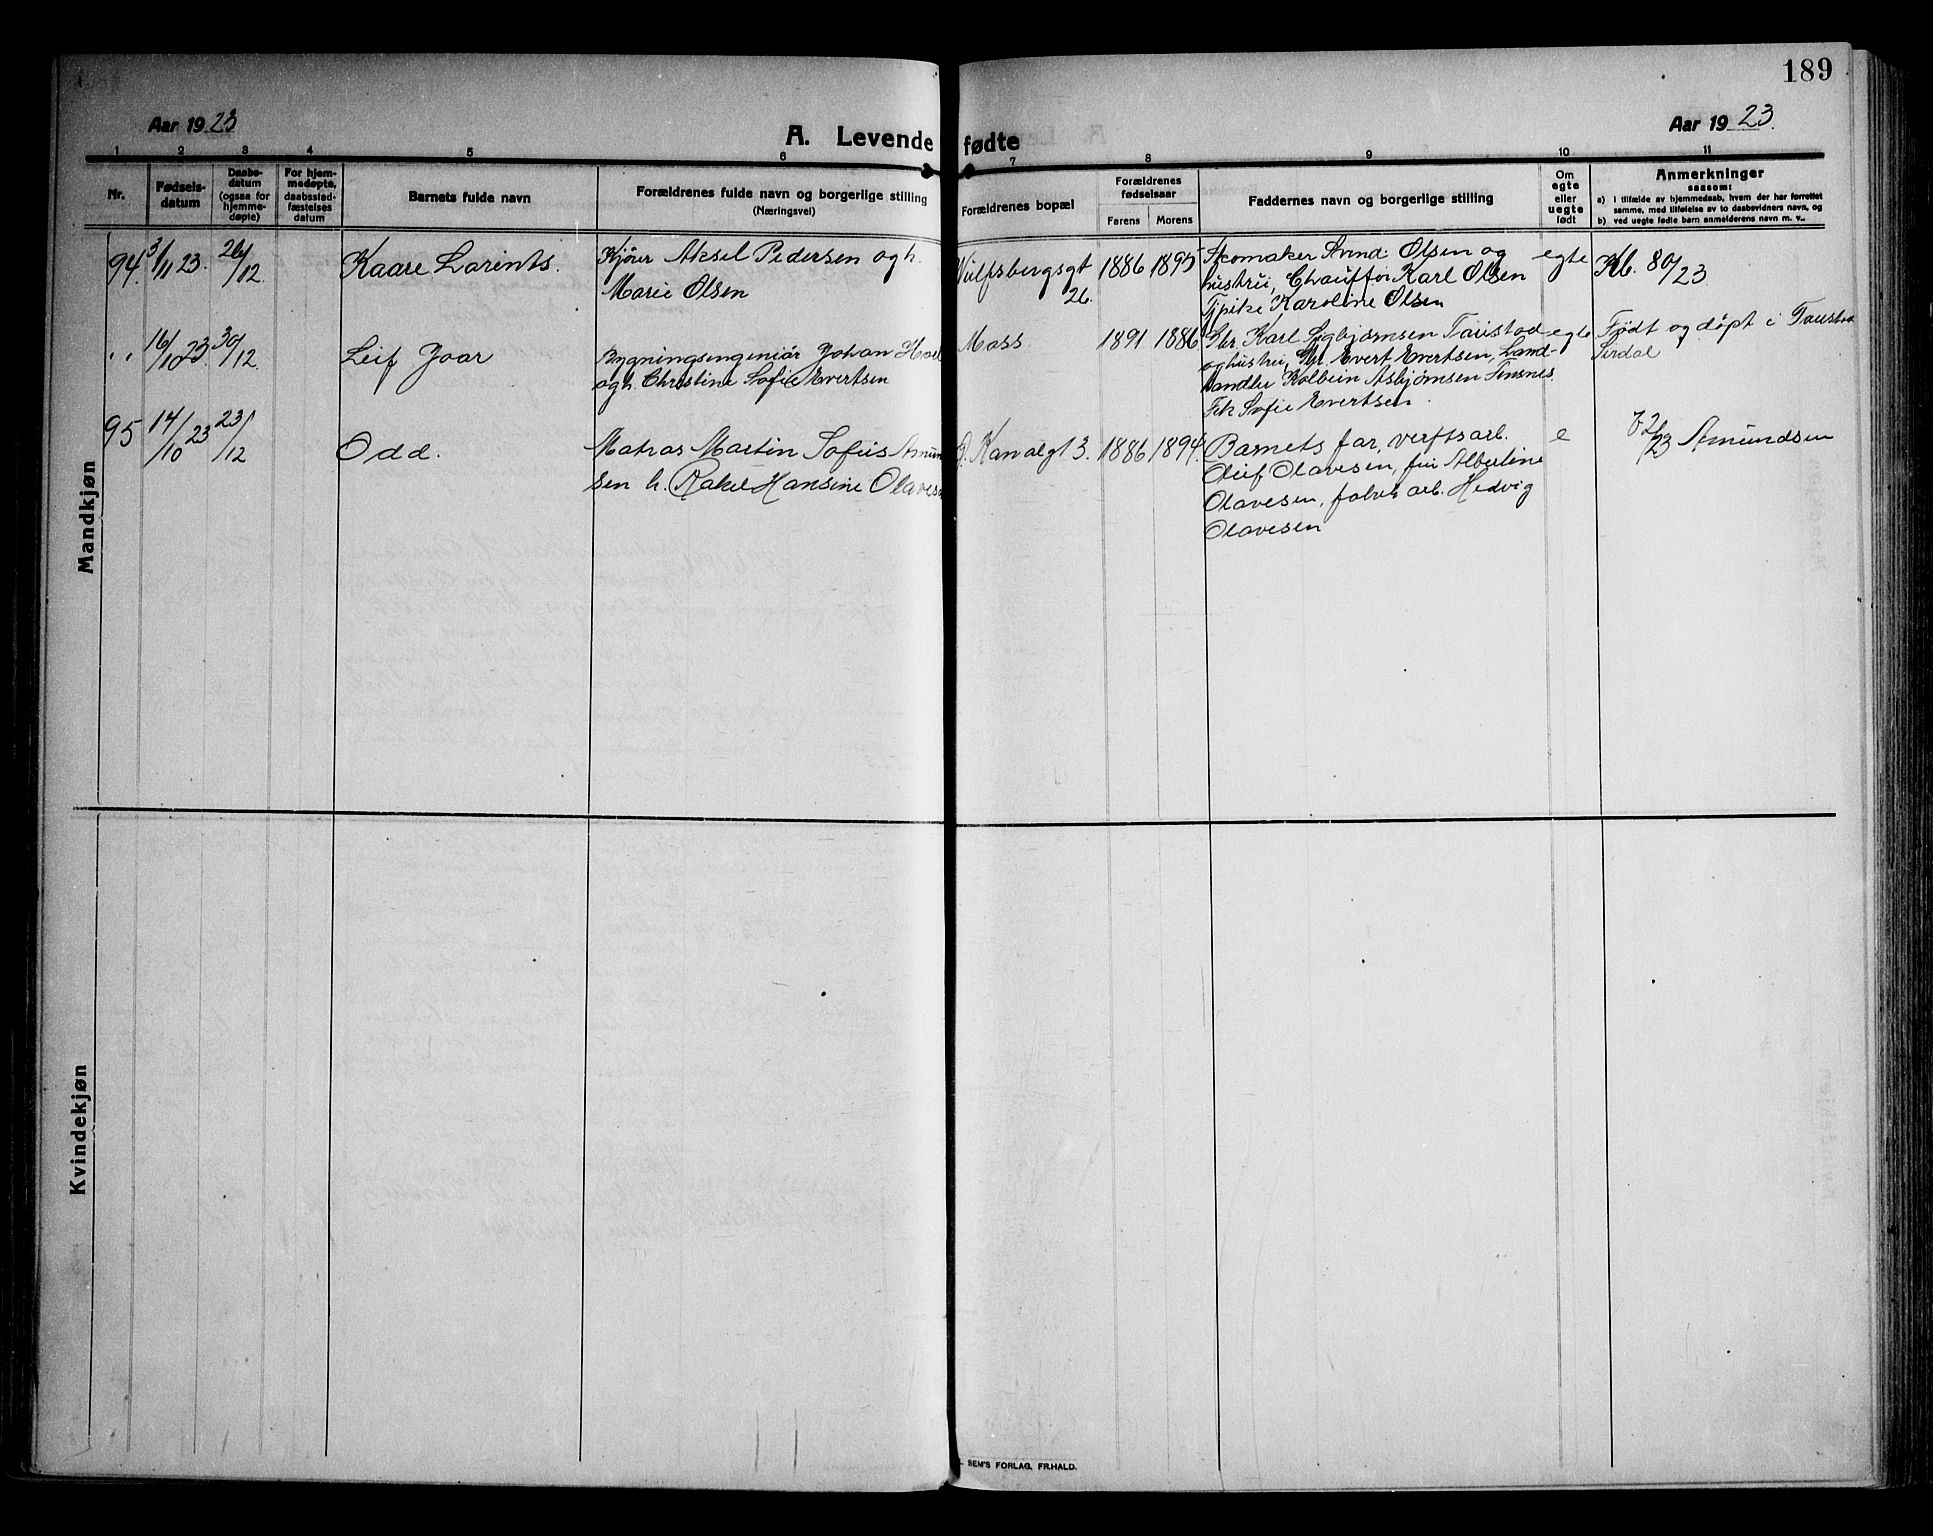 189
Aar 1923
A. Levende fødte
Aar 1923.
1 2 3 4 5 6 7 8 9 10 11
Nr.
Fødsels-
datum
Daabs-
datum
(ogsaa for
hjemme-
døpte)
For hjem-
medøpte,
daabsstad-
fæstelses
datum
Barnets fulde navn
Forældrenes fulde navn og borgerlige stilling
(Næringsvei)
Forældrenes bopæl
Forældrenes
fødselsaar
Farens Morens
Faddernes navn og borgerlige stilling
Om
egte
eller
uegte
født
Anmerkninger
saasom:
a) i tilfælde av hjemmedaab, hvem der har forrettet
samme, med tilføielse av to daabsvidners navn, og
b) ved uegte fødte barn anmelderens navn m. v...
Mandkjøn
94. 3/11 23. 26/12 Kaare Larints.
Kjører Aksel Pedersen og h.
Marie Olsen
Wulfsbergsgt
26.
1886 1895
Skomaker Svend Olsen og
hustru, Chauffør Karl Olsen
Tjpike Karoline Olsen
egte
Kb. 80/23
" 16/10 23 30/12 Leif Joar
Bygningsingeniør Johan
og h. Christine Sofie Evertsen
Moss
1891 1886
Gbr. Karl Sigbjørnsen Taustad
og hustru, Gbr. Evert Evertsen, Land-
handler Kolbein Asbjørnsen Finsnes.
Frk Sofie Evertsen.
egte
Født og døpt i
Sirdal
95 14/10 23 23/12 Odd.
Matros Martin Sofus Amun
sen h. Rakel Hansine Olaves
Kanalgt 3.
1886 1894.
Barnets far, verftsarb.
Oluf Olavesen, fru Albertine
Olavesen, fabrik arb. Hedvig
Olavesen
e
82/23 Amundsen
Kvindekjøn
SEM'S FORLAG, FR.HALD.